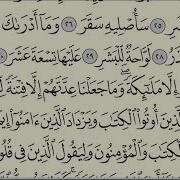 سَأُصْلِيهِ سَقَرَ ٢٦ وَمَآ أَدْرَىٰكَ
٢٨ لَوَّاحَةٌ لِّلْبَشَرِ ٢٩ عَلَيْهَا تِسْعَةَ عَشَرَ
إِلَّا مَلَٰٓئِكَةً ۙ وَمَا جَعَلْنَا عِدَّتَهُمْ إِلَّا فِتْنَةً
ٱلَّذِينَ أُوتُوا۟ ٱلْكِتَٰبَ وَيَزْدَادَ ٱلَّذِينَ ءَامَنُوٓا۟
ٱلْكِتَٰبَ وَٱلْمُؤْمِنُونَ ۙ وَلِيَقُولَ ٱلَّذِينَ فِى